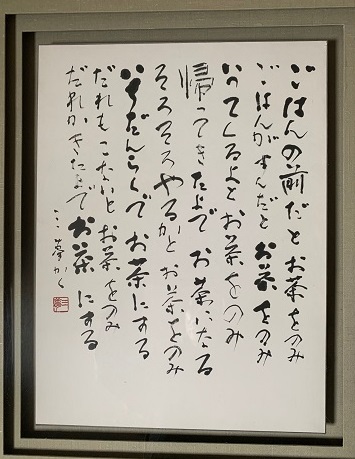 ごはんの前だとお茶をのみ
ごはんがすんだとお茶をのみ
いってくるよとお茶をのみ
帰ってきたよでお茶になる
そろそろやるかとお茶をのみ
いちだんらくでお茶にする
だれもこないとお茶をのみ
だれかきたまでお茶にする
三夢かく